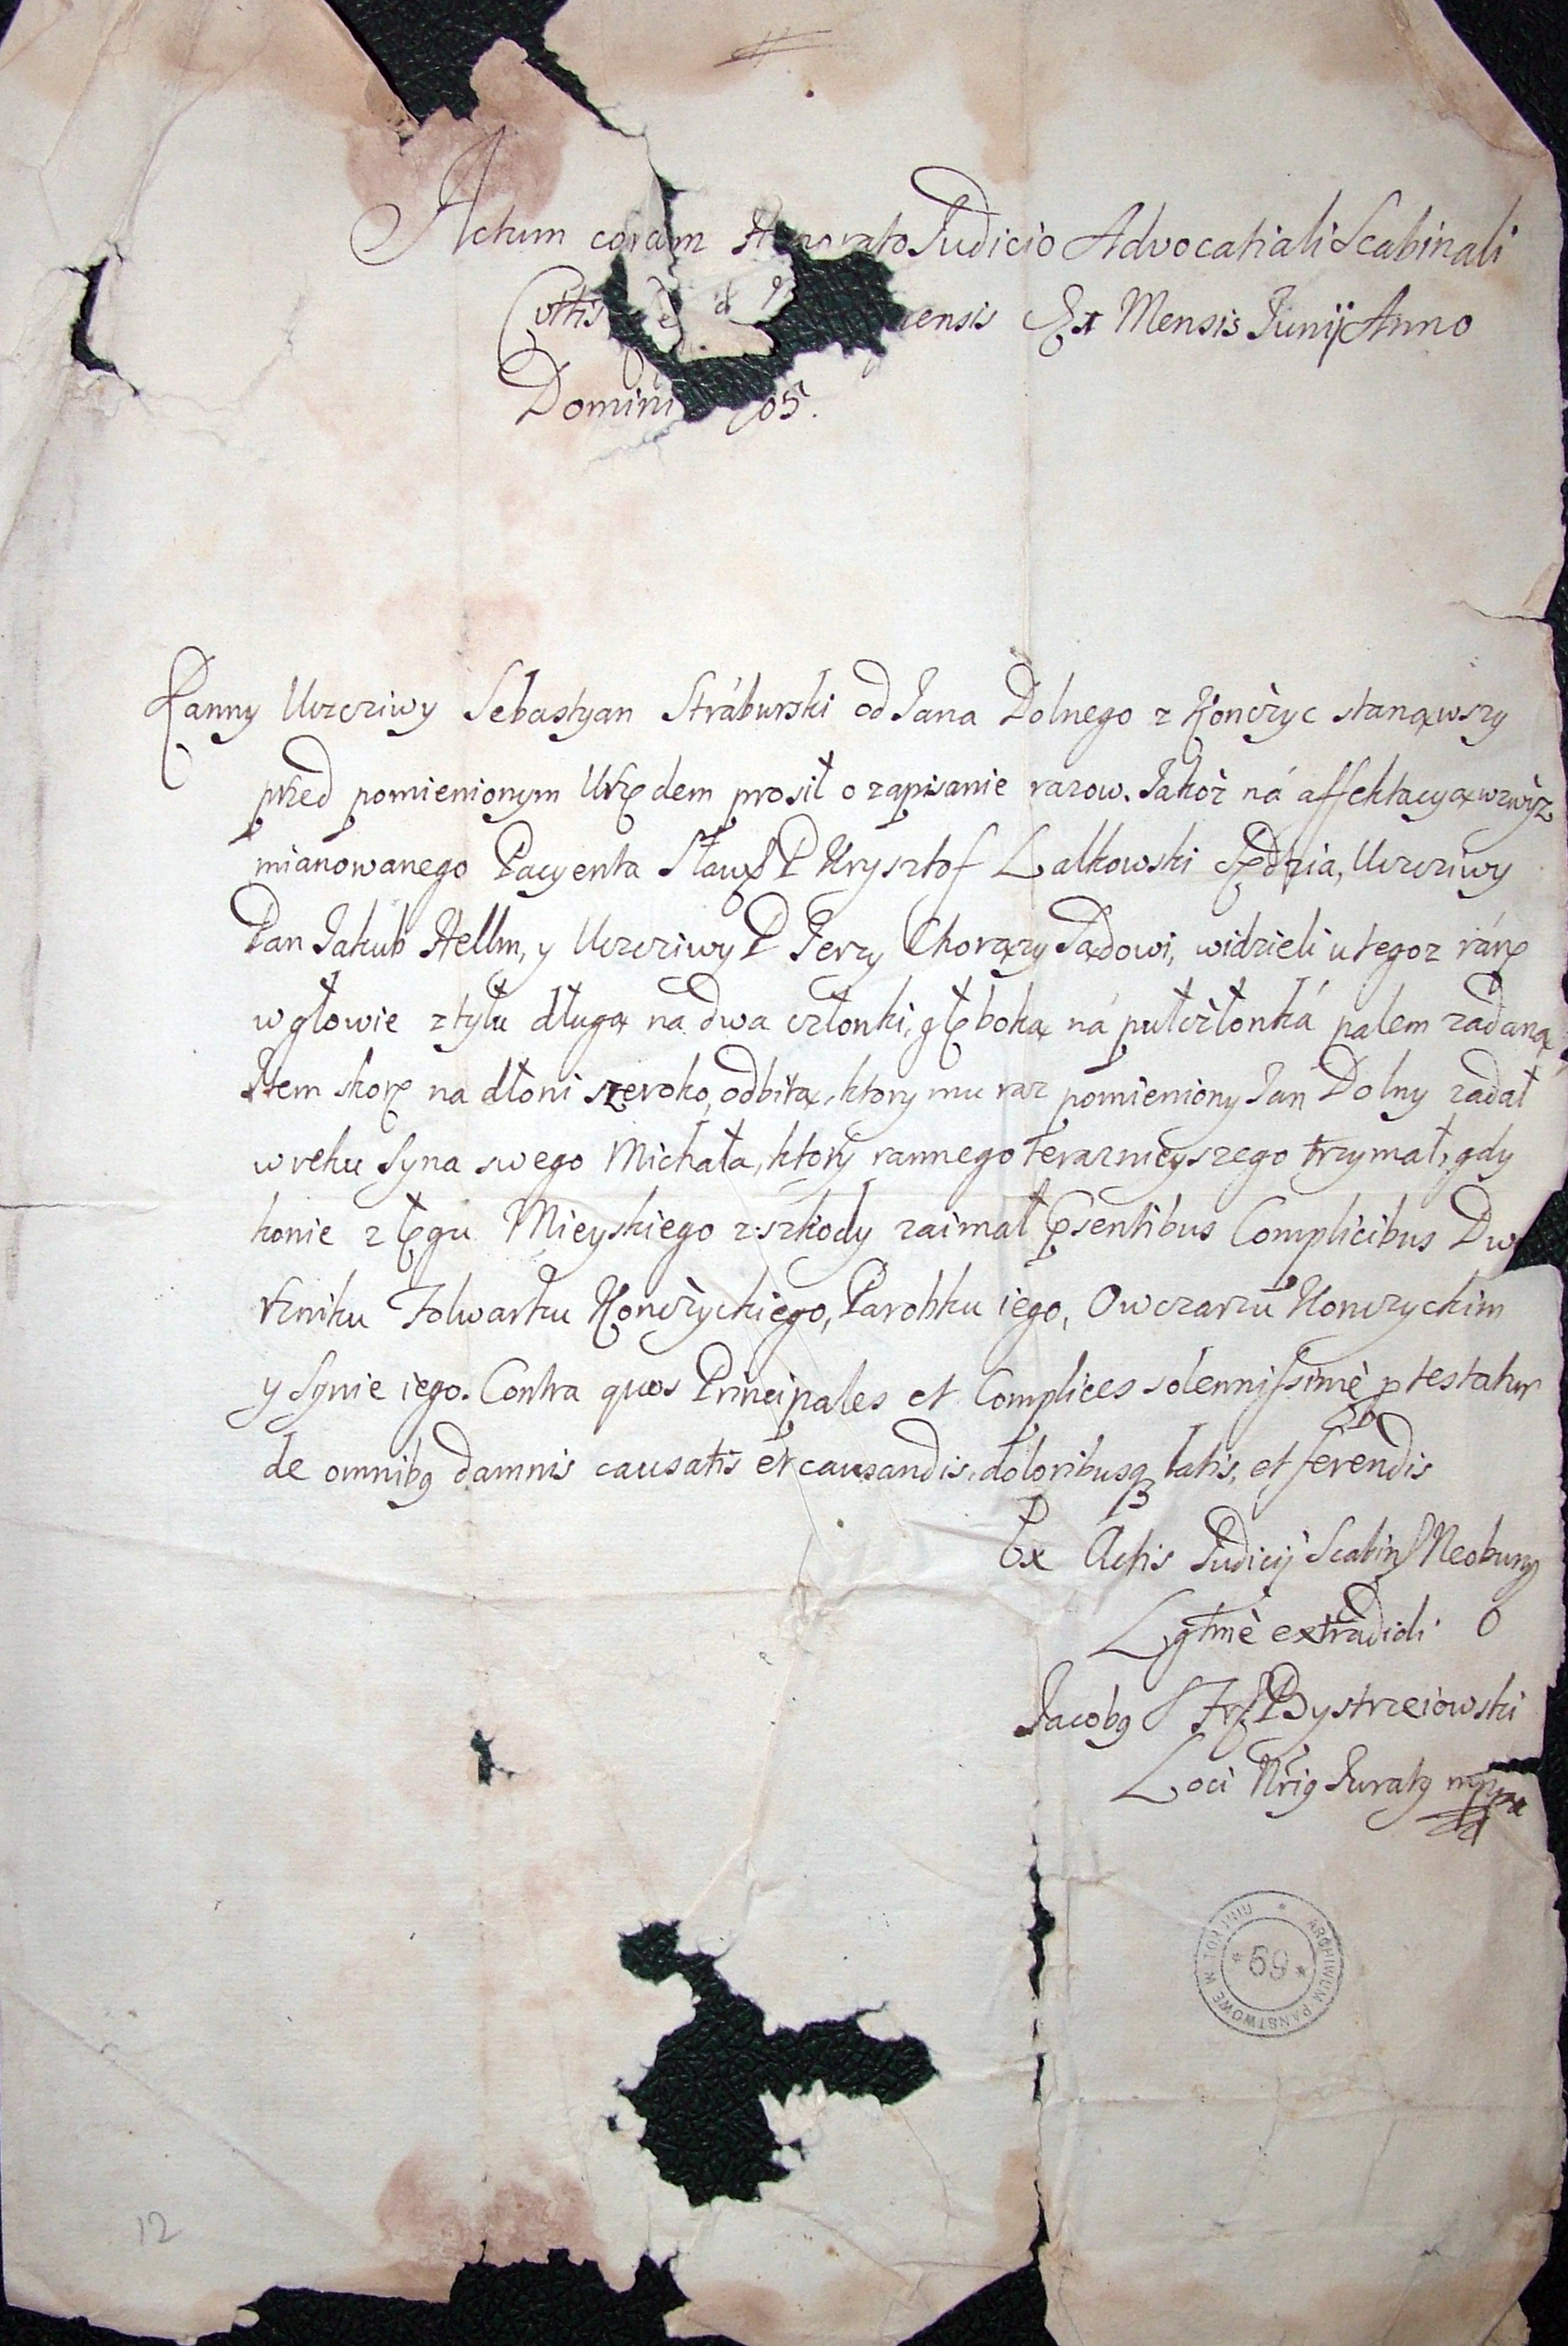 Actum coram Honorato Judicio Advocatiali Scabinali
Cvttis ensis Mensis Junij Anno
Domini 05.
Ranny Uczciwy Sebastyan Stráburski od Jana Dolnego z Kończyc stanąwszy
przed pomienionym Urzędem prosił o zapisanie razow. Jakoż ná affektacyą wzwyż
mianowanego Pacyenta Sław P Krysztof Lalkowski Sędzia, Uczciwy
Pan Jakub Hellm, y Uczciwy P Jerzy Chorąży Sądowi, widzieli u tegoz ránę
w głowie z tyłu długą na dwa członki, głęboką ná pułczłonká palem zadaną
Item skorę na dłoni szeroko odbitą, ktory mu raz pomieniony Jan Dolny zadał
w ręku Syna swego Michała, ktory rannego teraznieyszego trzymał, gdy
konie z łęgu Mieyskiego z szkody zaimał pŝentibus Complicibus Dwo
rzniku Folwarku Kończyckiego, Parobku iego, Owczarzu Konczyckim
y Synie iego. Contra quos Principales et Complices solennissimè ptestatur
de omnibg damnis causatis et causandis, doloribusq latis, et ferendis
Ex Actis Judicij Scabin Neoburg
Lgtmè extradidi
Jacobg Frf Bystrzeiowski
Loci Nrig Juratg mppa
ARCHIWUM PAŃSTWOWE W TORUNIU
69
12